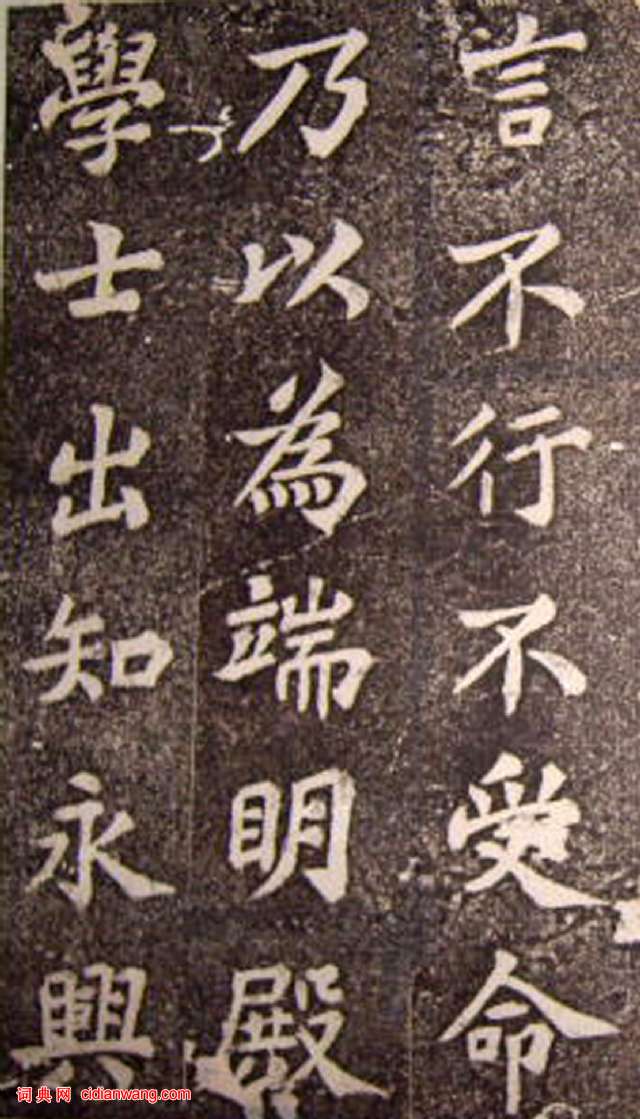 言不行不受命
乃以為端明殿
學士出知永興
词典网 cidianwang.com